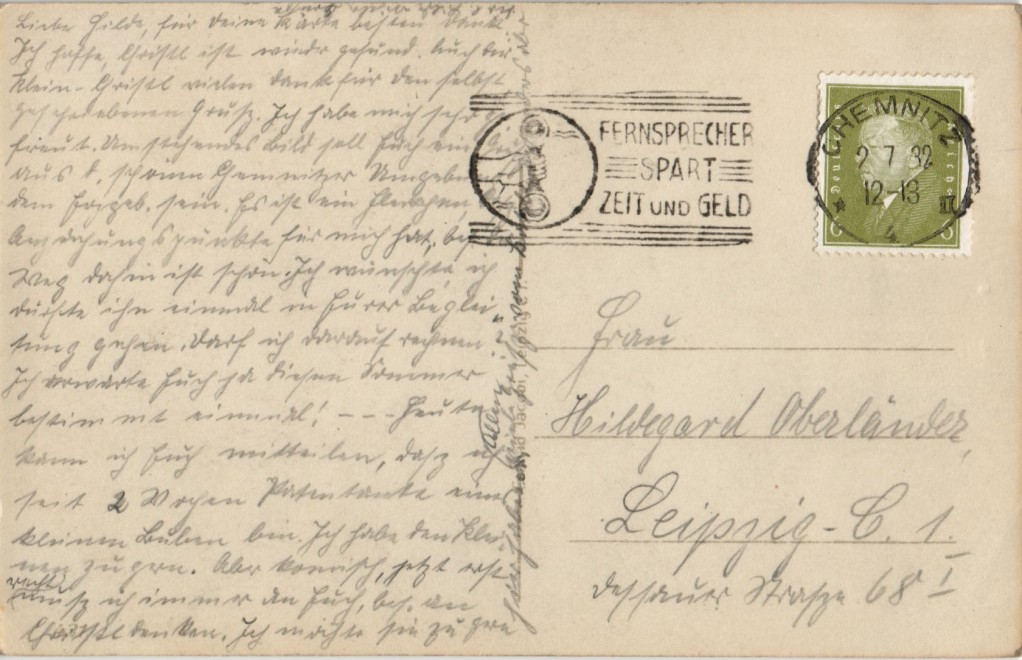 Liebe Hilde, für deine Karte besten Dank
Ich hoffe, Christl ist wieder gesund. Auch der
Klein-Christl vielen Dank für den selbst
geschriebenen Grusz. Ich habe mich sehr ge
freut. Umstehendes Bild soll Euch ein
aus d. schönen Chemnitzer Umgebung
dem Erzgeb. sein. Es ist ein Fleckchen,
Anziehungspunkte für mich hat, bes.
Weg dahin ist schön. Ich wünschte, ich
dürfte ihn einmal in Eurer Beglei
tung gehen. Darf ich darauf rechnen?
Ich erwarte Euch ja diesen Sommer
bestimmt einmal! --- Heute
kann ich Euch mitteilen, dasz ich
seit 2 Wochen Patentante eines
kleinen Buben bin. Ich habe den Klei
nen zu gern. Aber komisch, jetzt erst
recht
musz ich immer an Euch, bes. an
Christl denken. Ich möchte sie zu gern
FERNSPRECHER
SPART
ZEIT UND GELD
CHEMNITZ
2 7 32
12-13
4
Frau
Hildegard Oberländer,
Leipzig-C. 1.
Dessauer Strasze 68 I